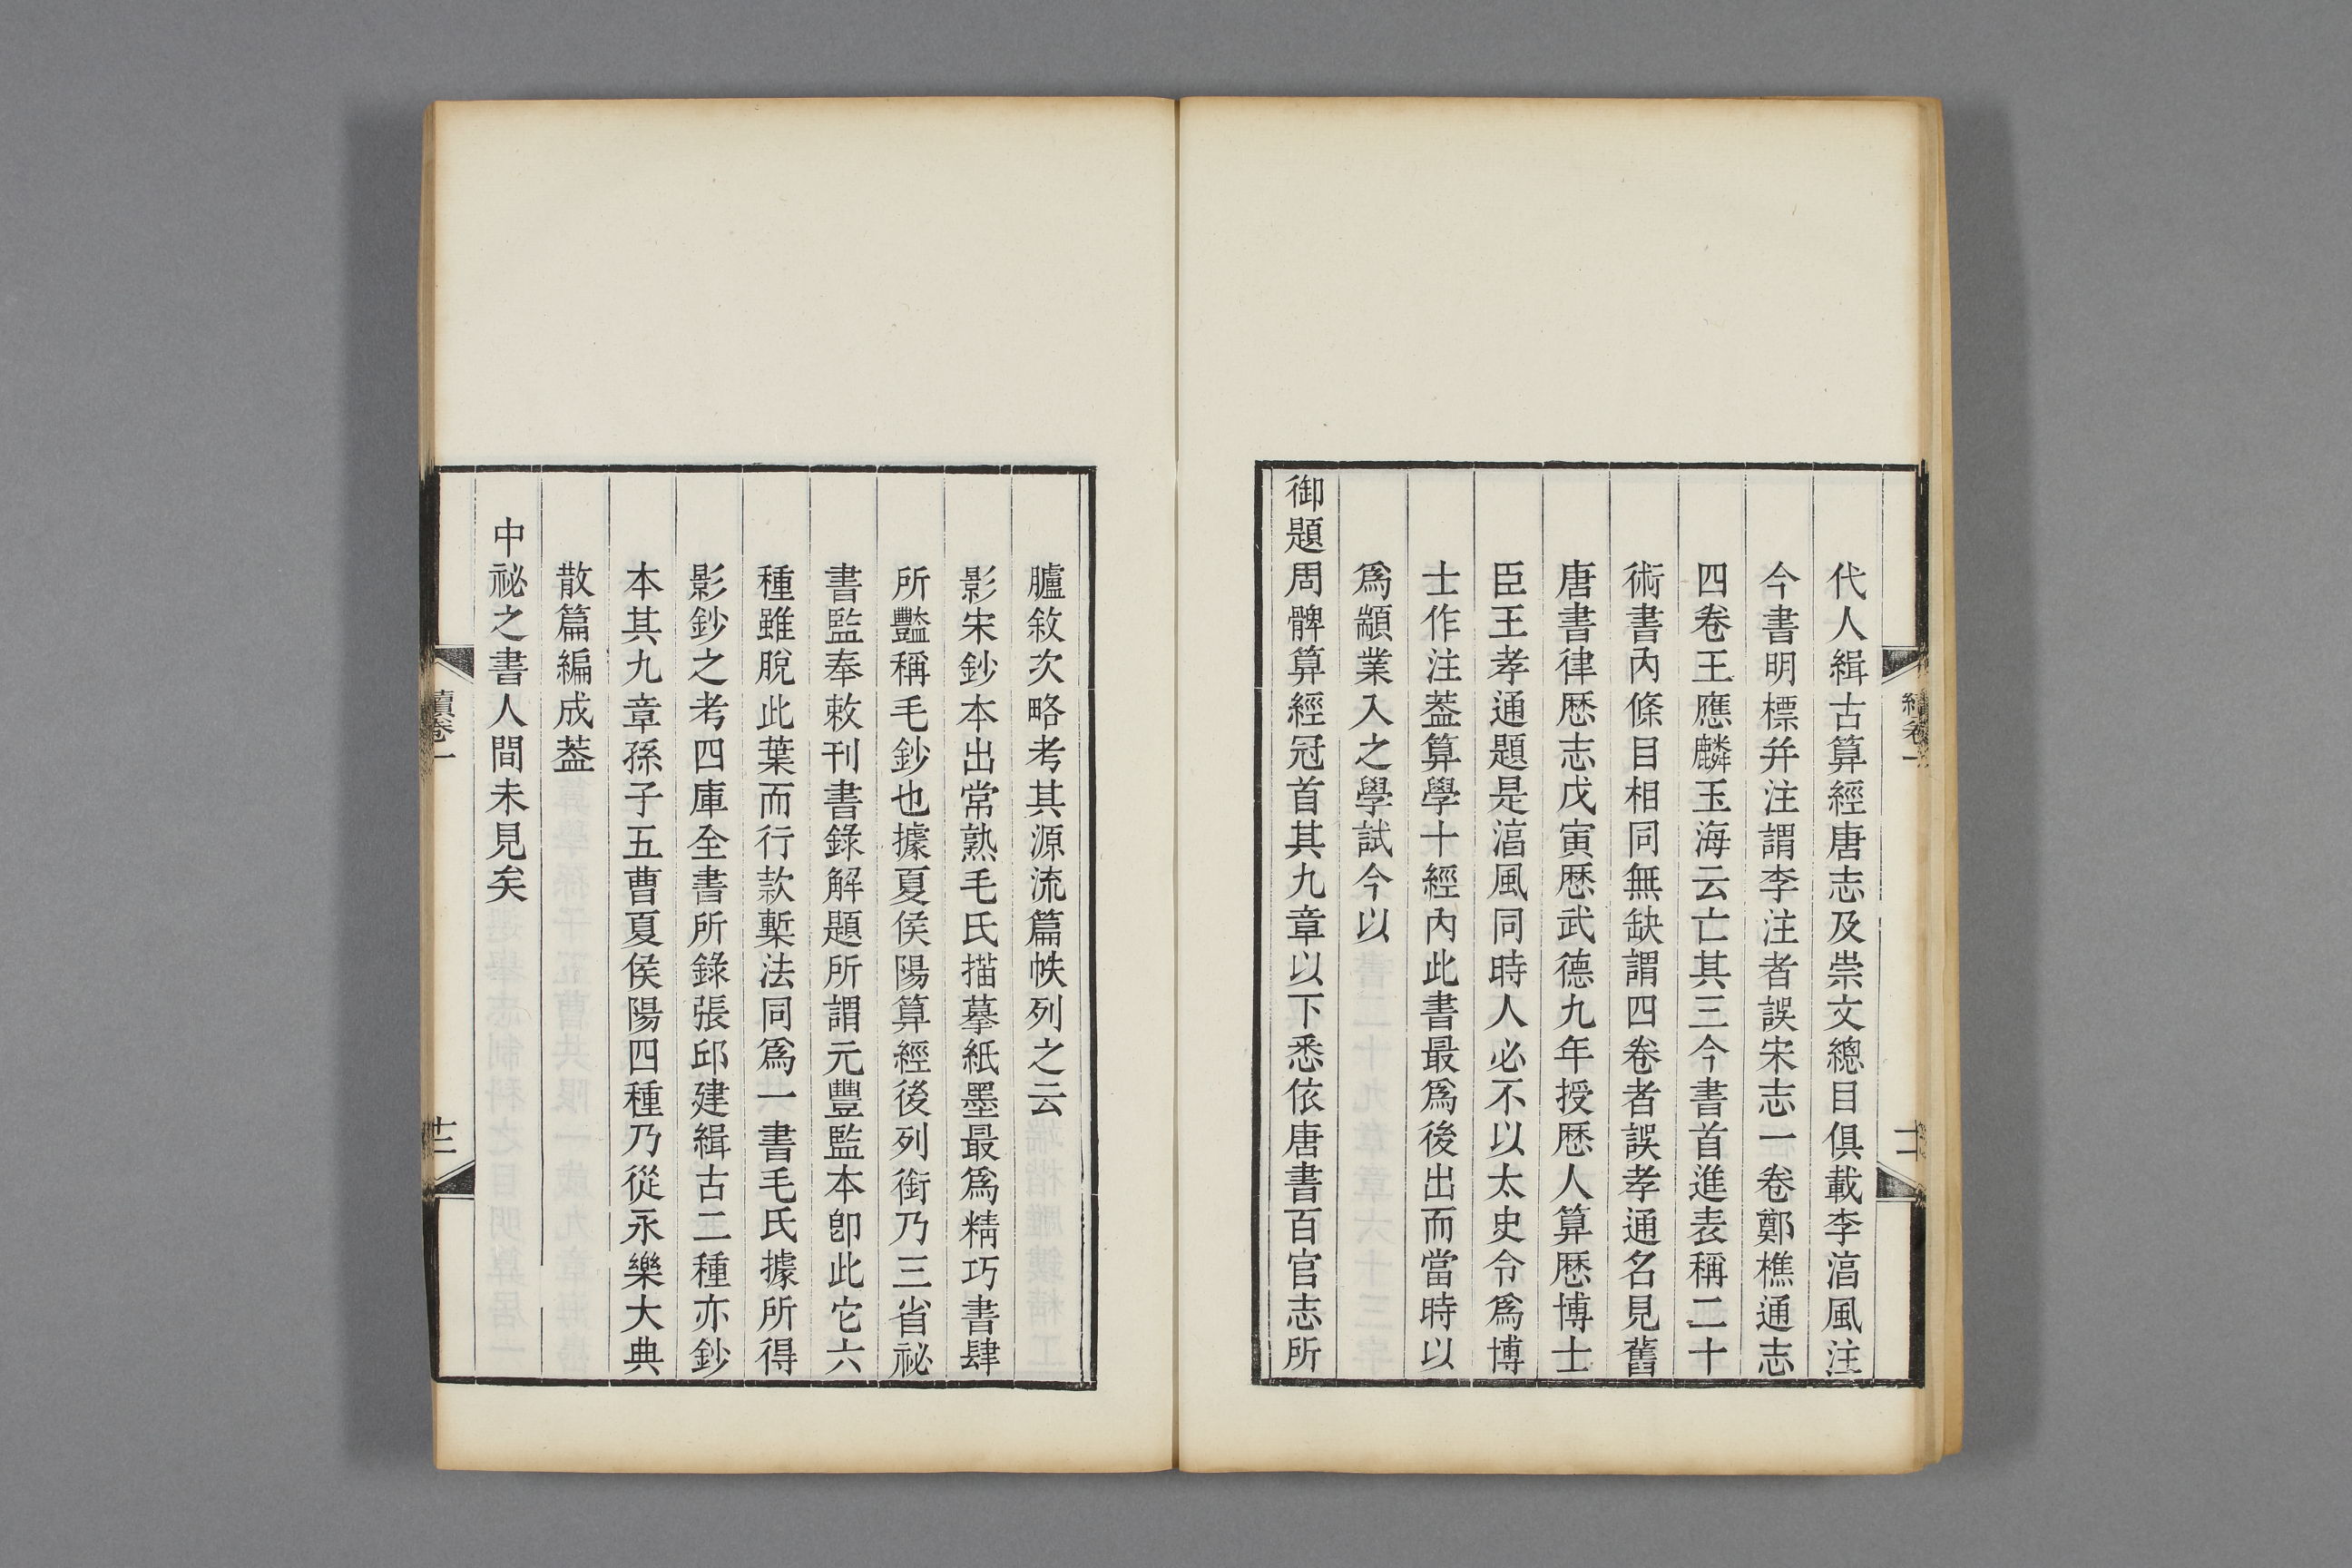 代人緝古算經唐志及崇文總目俱載李湻風注
今書明標幷注謂李注者誤宋志一卷鄭樵通志
四卷王應麟玉海云亡其三今書首進表稱二十
術書內條目相同無缺謂四卷者誤孝通名見舊
唐書律厯志戊寅厯武德九年授厯人算厯博士
臣王孝通題是湻風同時人必不以太史令爲博
士作注葢算學十經內此書最爲後出而當時以
爲顓業入之學試今以
御題周髀算經冠首其九章以下悉依唐書百官志所
臚敘次略考其源流篇帙列之云
影宋鈔本出常熟毛氏描摹紙墨最爲精巧書肆
所豔稱毛鈔也據夏侯陽算經後列銜乃三省祕
書監奉敕刊書錄解題所謂元豐監本卽此它六
種雖脫此葉而行款槧法同爲一書毛氏據所得
影鈔之考四庫全書所錄張邱建緝古二種亦鈔
本其九章孫子五曹夏侯陽四種乃從永樂大典
散篇編成葢
中祕之書人間未見矣
續卷一